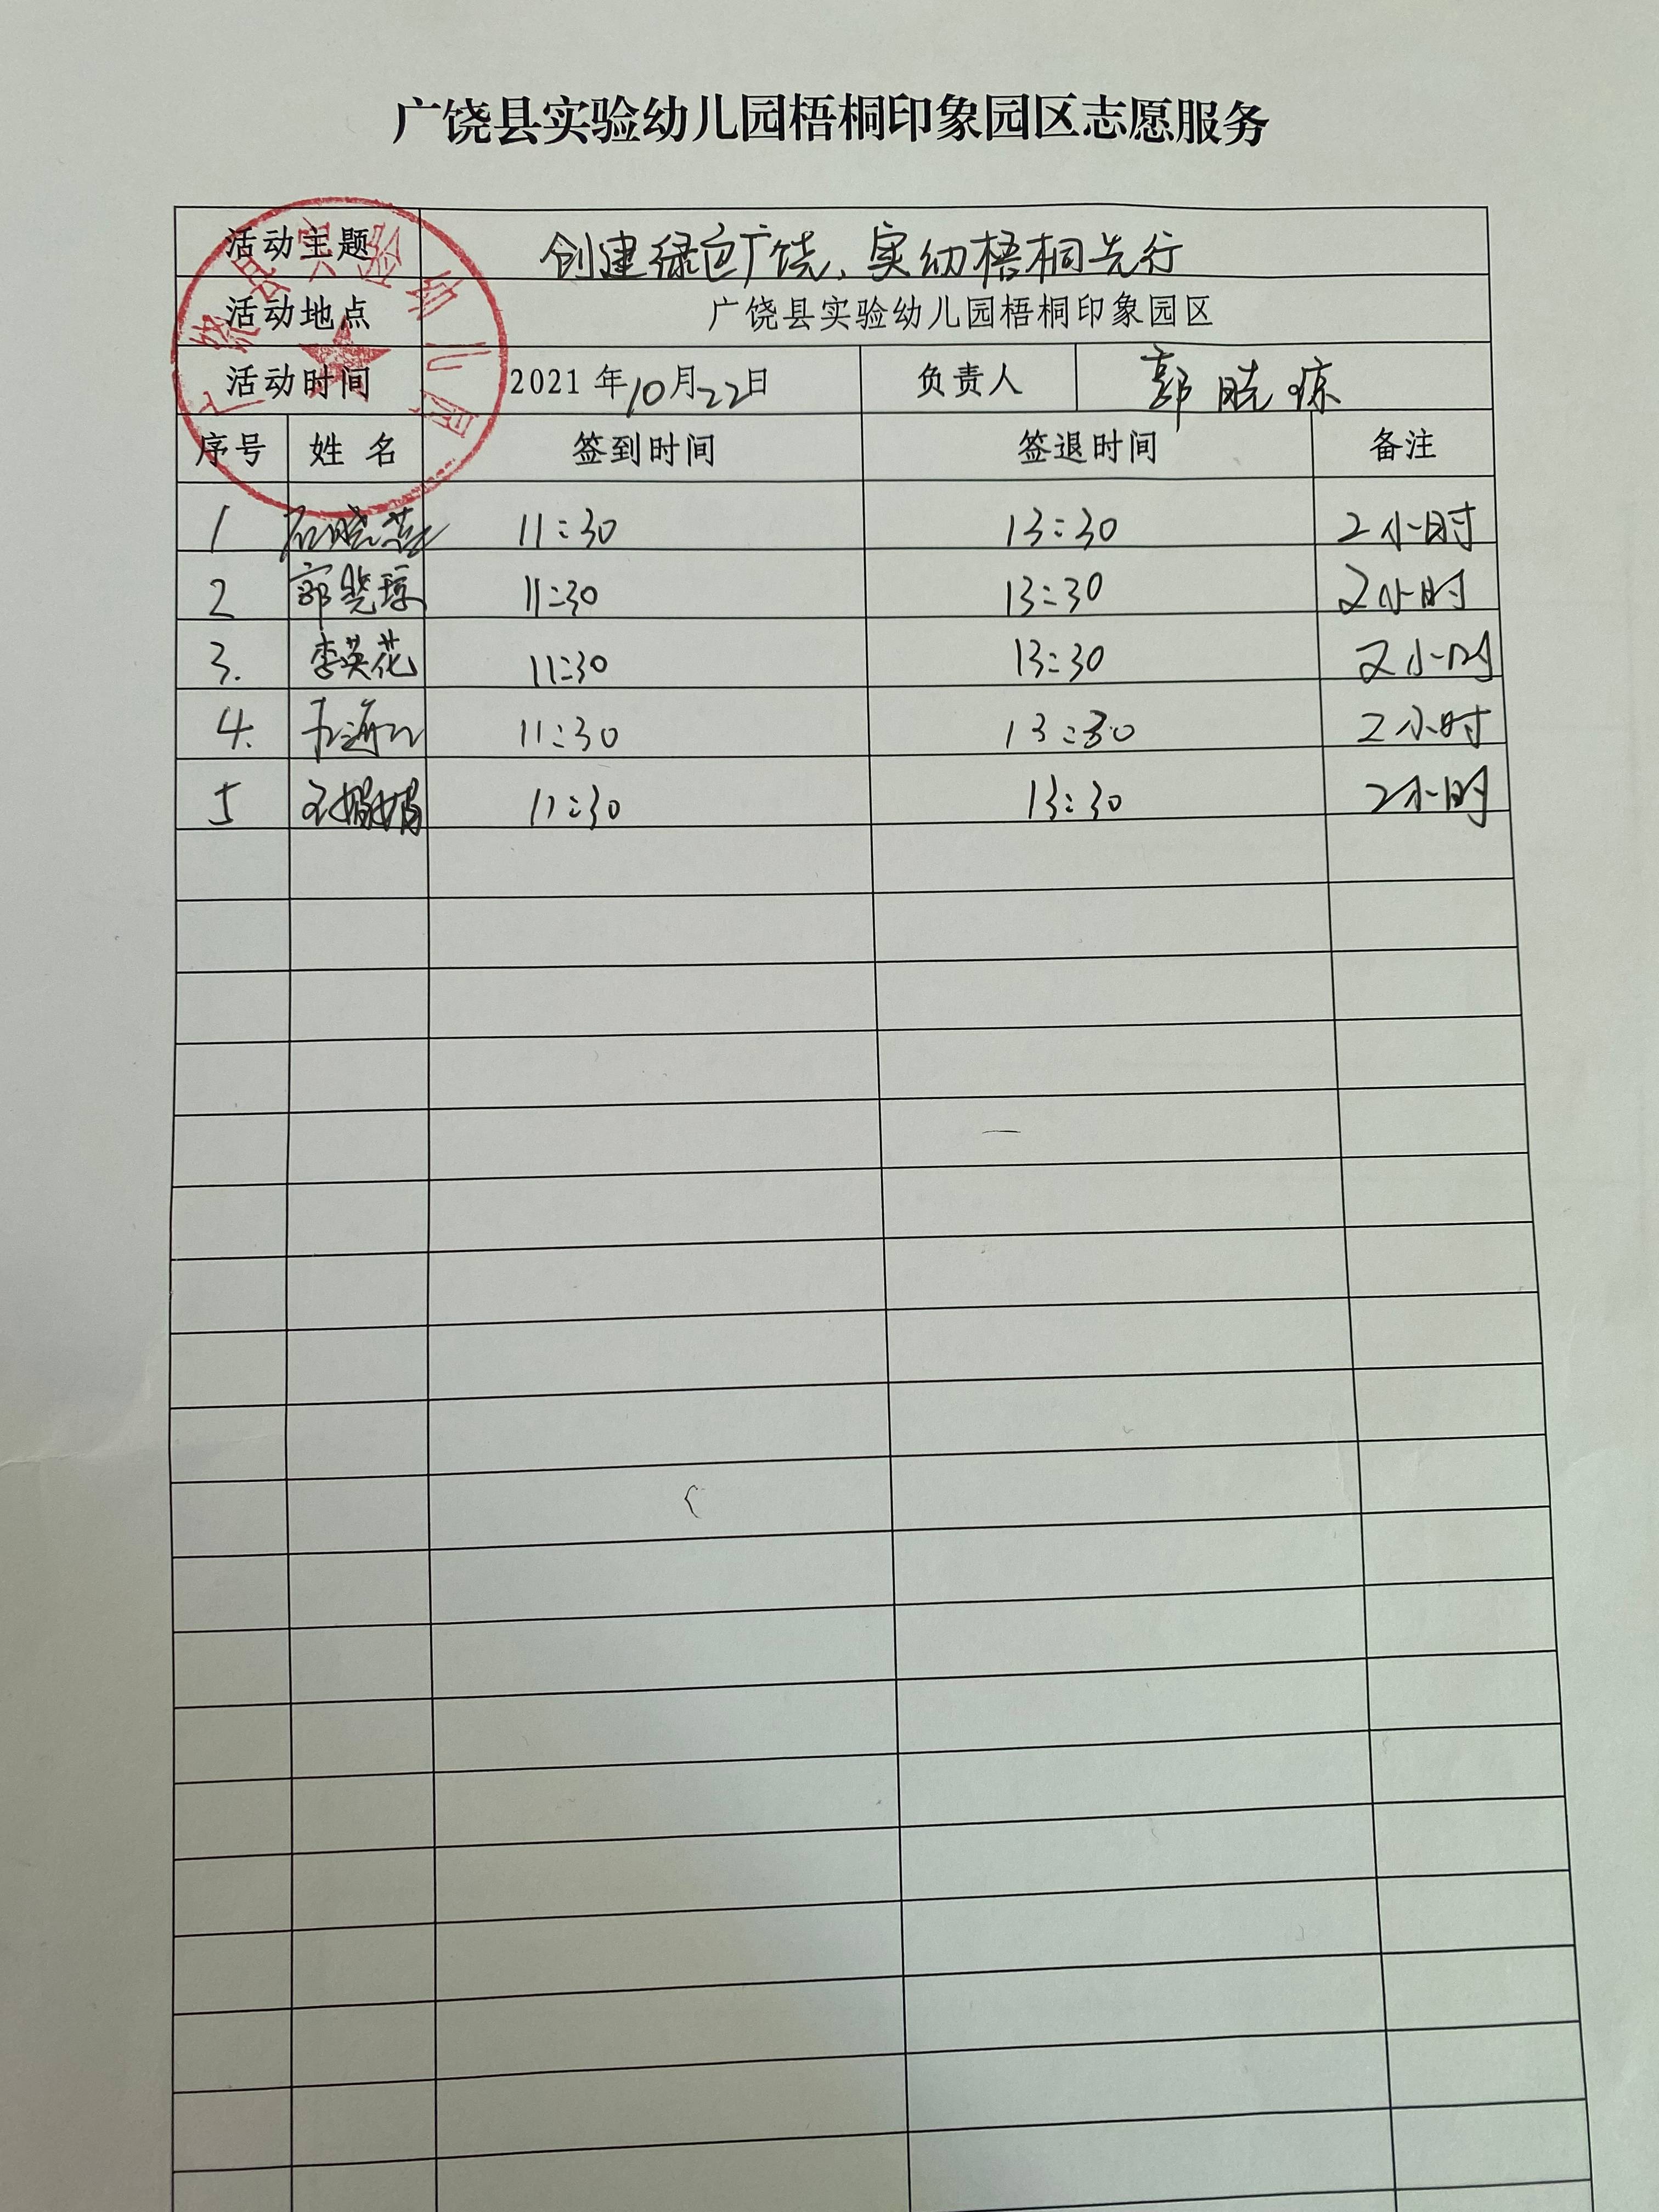 广饶县实验幼儿园梧桐印象园区志愿服务
活动主题 创建绿色广饶、实幼梧桐先行
活动地点 广饶县实验幼儿园梧桐印象园区
活动时间 2021年10月22日 负责人 郭晓琼
广饶县实验幼儿园
序号 姓名 签到时间 签退时间 备注
1 石晓燕 11:30 13:30 2小时
2 郭晓琼 11:30 13:30 2小时
3. 李英花 11:30 13:30 2小时
4. 11:30 13:30 2小时
5 王娟娟 11:30 13:30 2小时